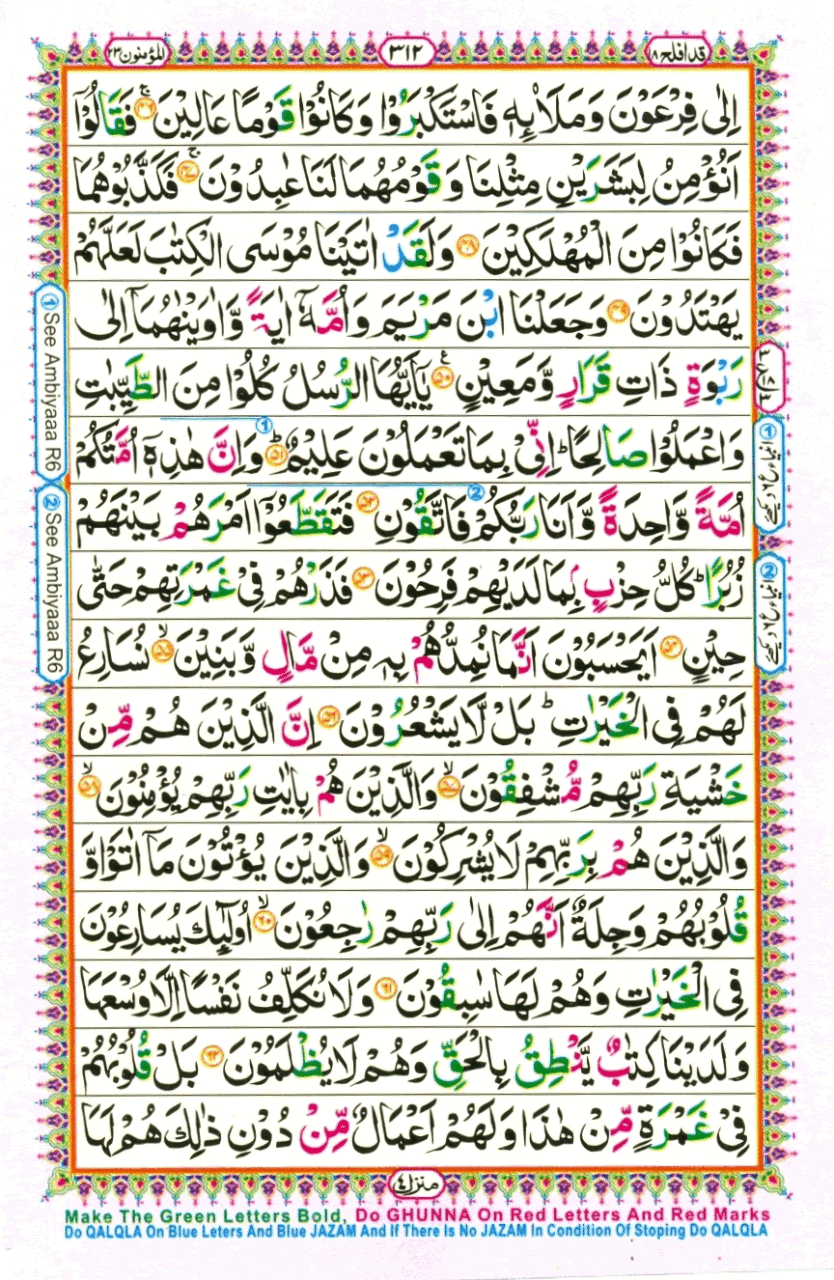 قد افلح ۱۸
۳۱۲
المؤمنون ۲۳
اِلٰى فِرْعَوْنَ وَ مَلَا۟ئِهٖ فَاسْتَكْبَرُوْا وَ كَانُوْا قَوْمًا عَالِيْنَ ۚ‏﴿۴۶﴾ فَقَالُوْۤا
اَنُؤْمِنُ لِبَشَرَيْنِ مِثْلِنَا وَ قَوْمُهُمَا لَنَا عٰبِدُوْنَ ۚ‏﴿۴۷﴾ فَكَذَّبُوْهُمَا
فَكَانُوْا مِنَ الْمُهْلَكِيْنَ ﴿۴۸﴾ وَلَقَدْ اٰتَيْنَا مُوْسَى الْكِتٰبَ لَعَلَّهُمْ
يَهْتَدُوْنَ ﴿۴۹﴾ وَجَعَلْنَا ابْنَ مَرْيَمَ وَاُمَّهٗۤ اٰيَةً وَّاٰوَيْنٰهُمَاۤ اِلٰى
رَبْوَةٍ ذَاتِ قَرَارٍ وَّمَعِيْنٍ ﴿۵۰﴾ يٰۤاَيُّهَا الرُّسُلُ كُلُوْا مِنَ الطَّيِّبٰتِ
وَاعْمَلُوْا صَالِحًا ؕ اِنِّىْ بِمَا تَعْمَلُوْنَ عَلِيْمٌ ؕ﴿۵۱﴾ وَاِنَّ هٰذِهٖۤ اُمَّتُكُمْ
اُمَّةً وَّاحِدَةً وَّاَنَا رَبُّكُمْ فَاتَّقُوْنِ ﴿۵۲﴾ فَتَقَطَّعُوْۤا اَمْرَهُمْ بَيْنَهُمْ
زُبُرًا ؕ كُلُّ حِزْبٍۢ بِمَا لَدَيْهِمْ فَرِحُوْنَ ﴿۵۳﴾ فَذَرْهُمْ فِىْ غَمْرَتِهِمْ حَتّٰى
حِيْنٍ ﴿۵۴﴾ اَيَحْسَبُوْنَ اَنَّمَا نُمِدُّهُمْ بِهٖ مِنْ مَّالٍ وَّبَنِيْنَ ۙ﴿۵۵﴾ نُسَارِعُ
لَهُمْ فِى الْخَيْرٰتِ ؕ بَلْ لَّا يَشْعُرُوْنَ ﴿۵۶﴾ اِنَّ الَّذِيْنَ هُمْ مِّنْ
خَشْيَةِ رَبِّهِمْ مُّشْفِقُوْنَ ۙ﴿۵۷﴾ وَالَّذِيْنَ هُمْ بِاٰيٰتِ رَبِّهِمْ يُؤْمِنُوْنَ ۙ﴿۵۸﴾
وَالَّذِيْنَ هُمْ بِرَبِّهِمْ لَا يُشْرِكُوْنَ ۙ﴿۵۹﴾ وَالَّذِيْنَ يُؤْتُوْنَ مَاۤ اٰتَوْا وَّ
قُلُوْبُهُمْ وَجِلَةٌ اَنَّهُمْ اِلٰى رَبِّهِمْ رٰجِعُوْنَ ۙ﴿۶۰﴾ اُولٰٓئِكَ يُسَارِعُوْنَ
فِى الْخَيْرٰتِ وَهُمْ لَهَا سٰبِقُوْنَ ﴿۶۱﴾ وَلَا نُكَلِّفُ نَفْسًا اِلَّا وُسْعَهَا
وَلَدَيْنَا كِتٰبٌ يَّنْطِقُ بِالْحَقِّ وَهُمْ لَا يُظْلَمُوْنَ ﴿۶۲﴾ بَلْ قُلُوْبُهُمْ
فِىْ غَمْرَةٍ مِّنْ هٰذَا وَلَهُمْ اَعْمَالٌ مِّنْ دُوْنِ ذٰلِكَ هُمْ لَهَا
منزل ۴
① See Ambiyaaa R6
② See Ambiyaaa R6
Make The Green Letters Bold, Do GHUNNA On Red Letters And Red Marks
Do QALQLA On Blue Leters And Blue JAZAM And If There Is No JAZAM In Condition Of Stoping Do QALQLA